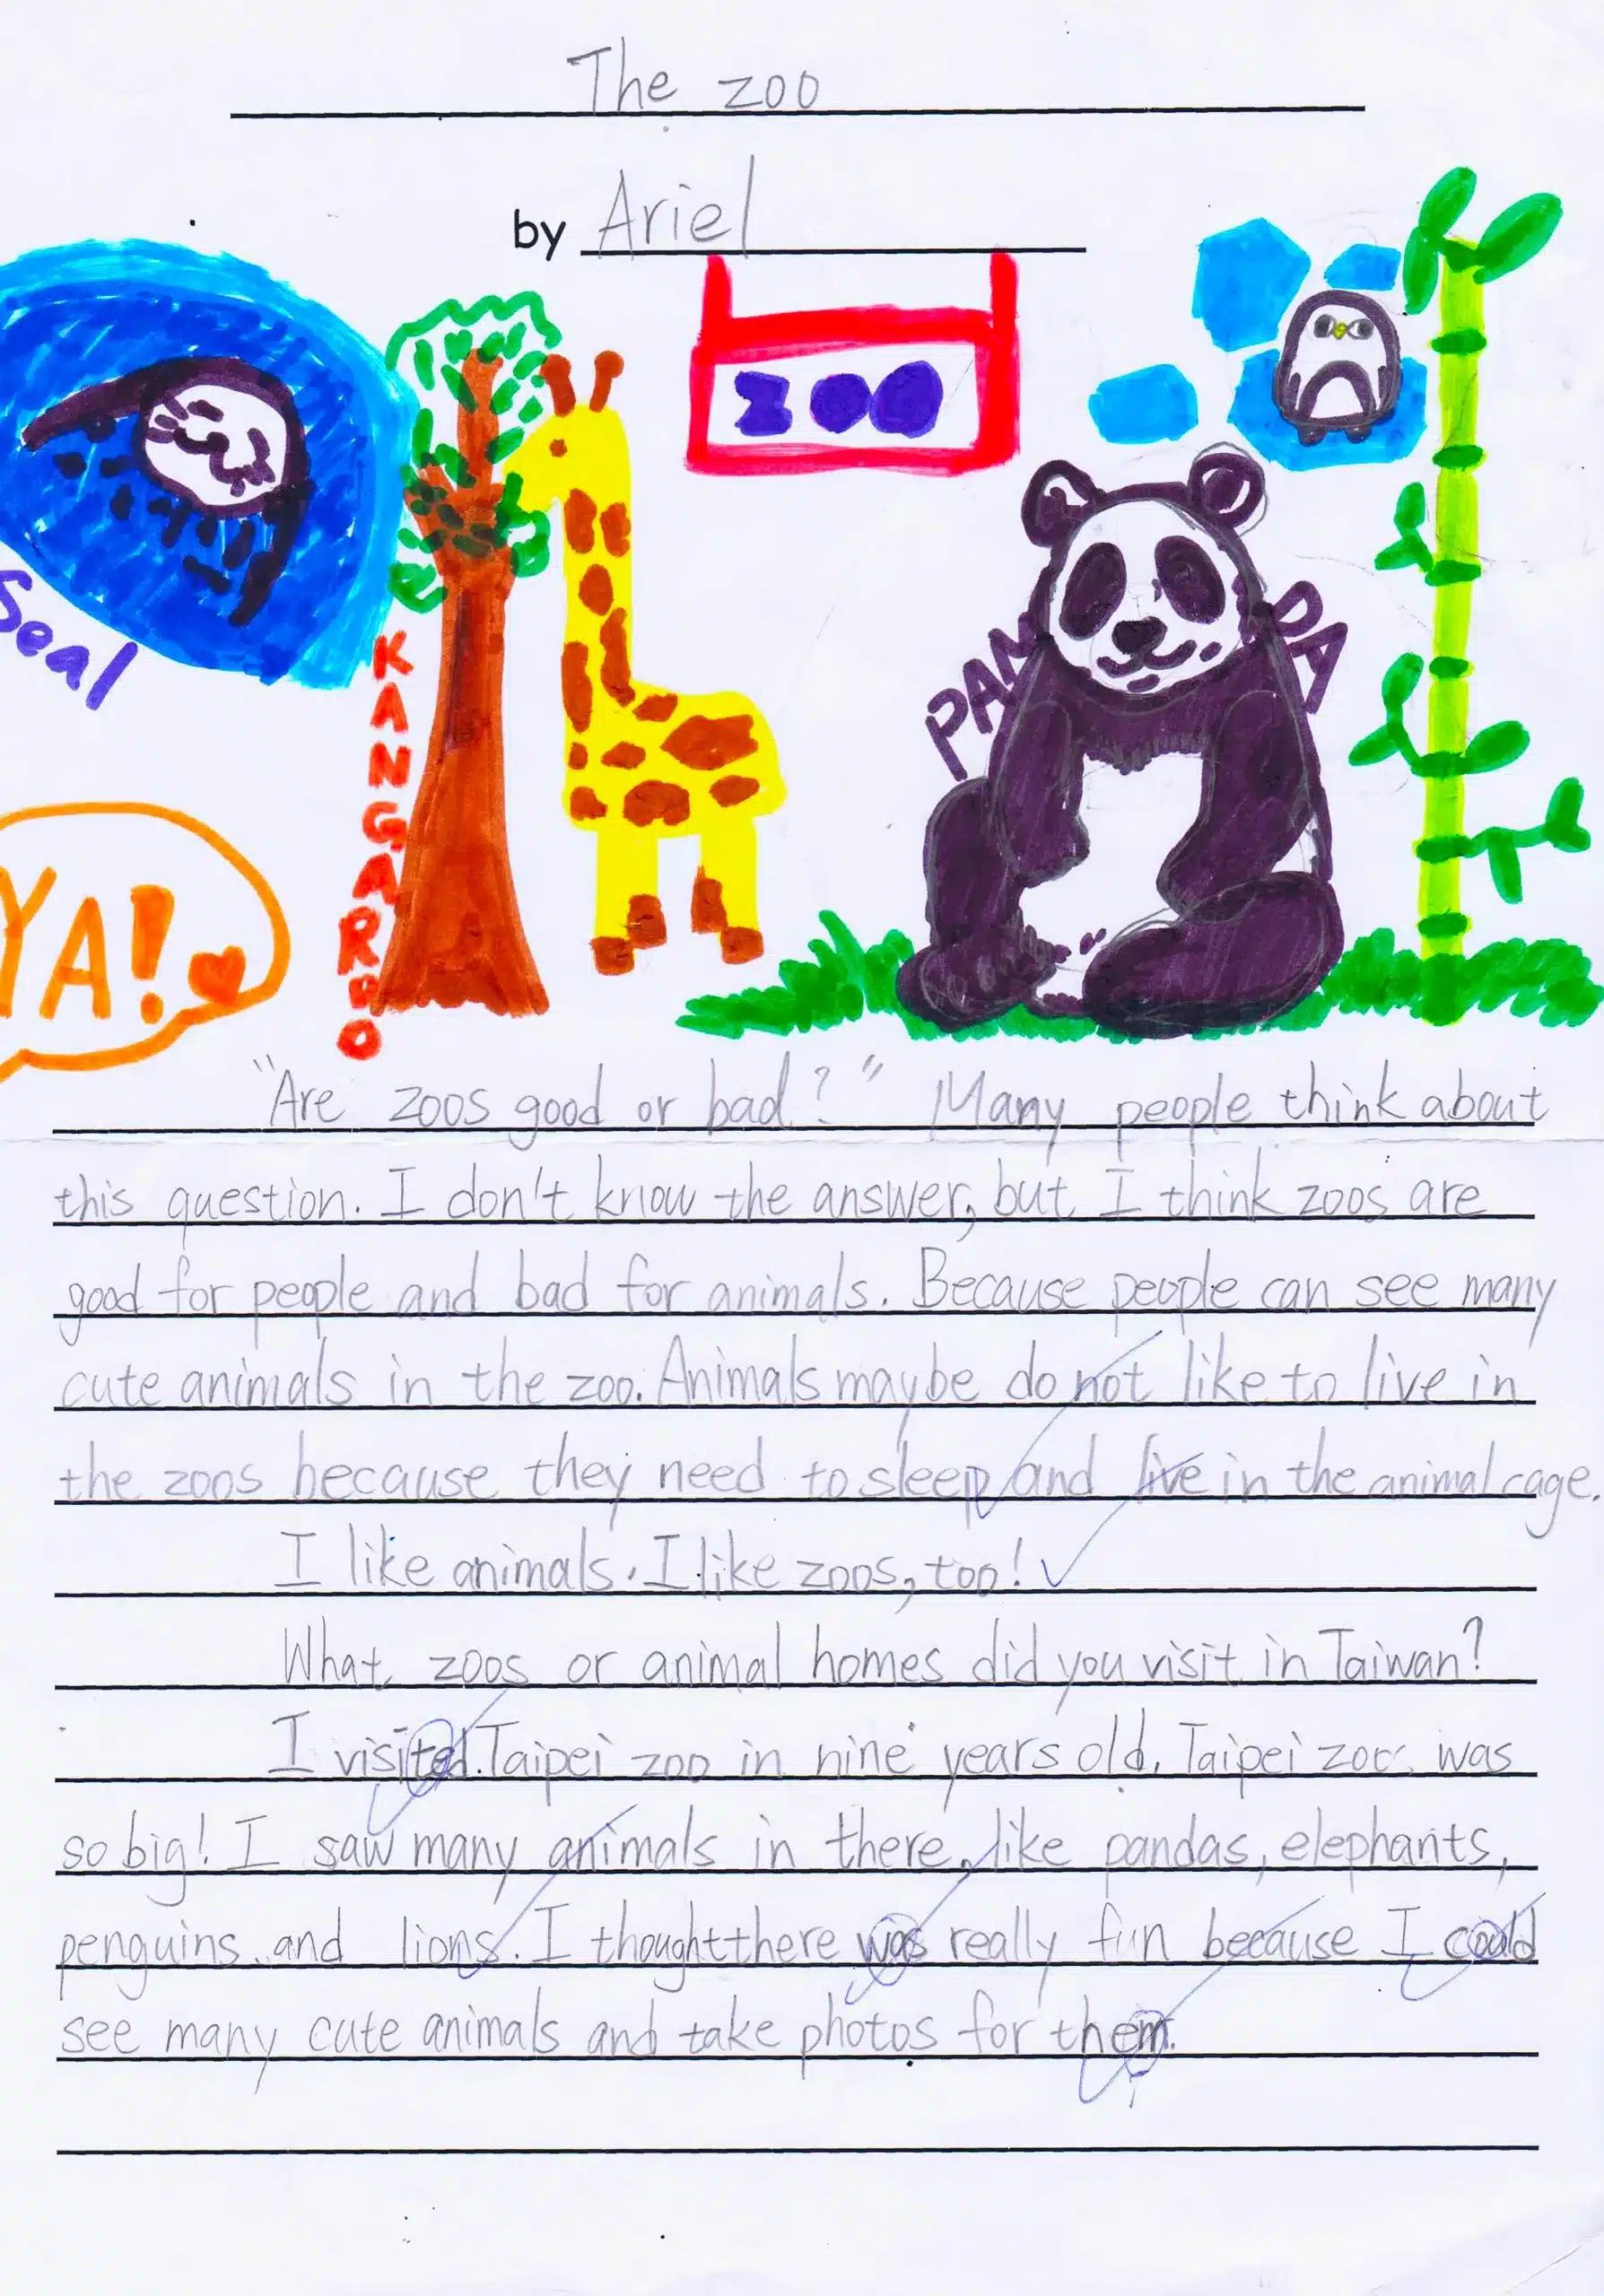 The zoo
by Ariel
ZOO
Seal
KANGAROO
PANDA
YA!
"Are zoos good or bad?" Many people think about
this question. I don't know the answer, but I think zoos are
good for people and bad for animals. Because people can see many
cute animals in the zoo. Animals maybe do not like to live in
the zoos because they need to sleep and live in the animal cage.
I like animals. I like zoos, too!
What zoos or animal homes did you visit in Taiwan?
I visited Taipei zoo in nine years old. Taipei zoo was
so big! I saw many animals in there, like pandas, elephants,
penguins and lions. I thought there was really fun because I could
see many cute animals and take photos for them.